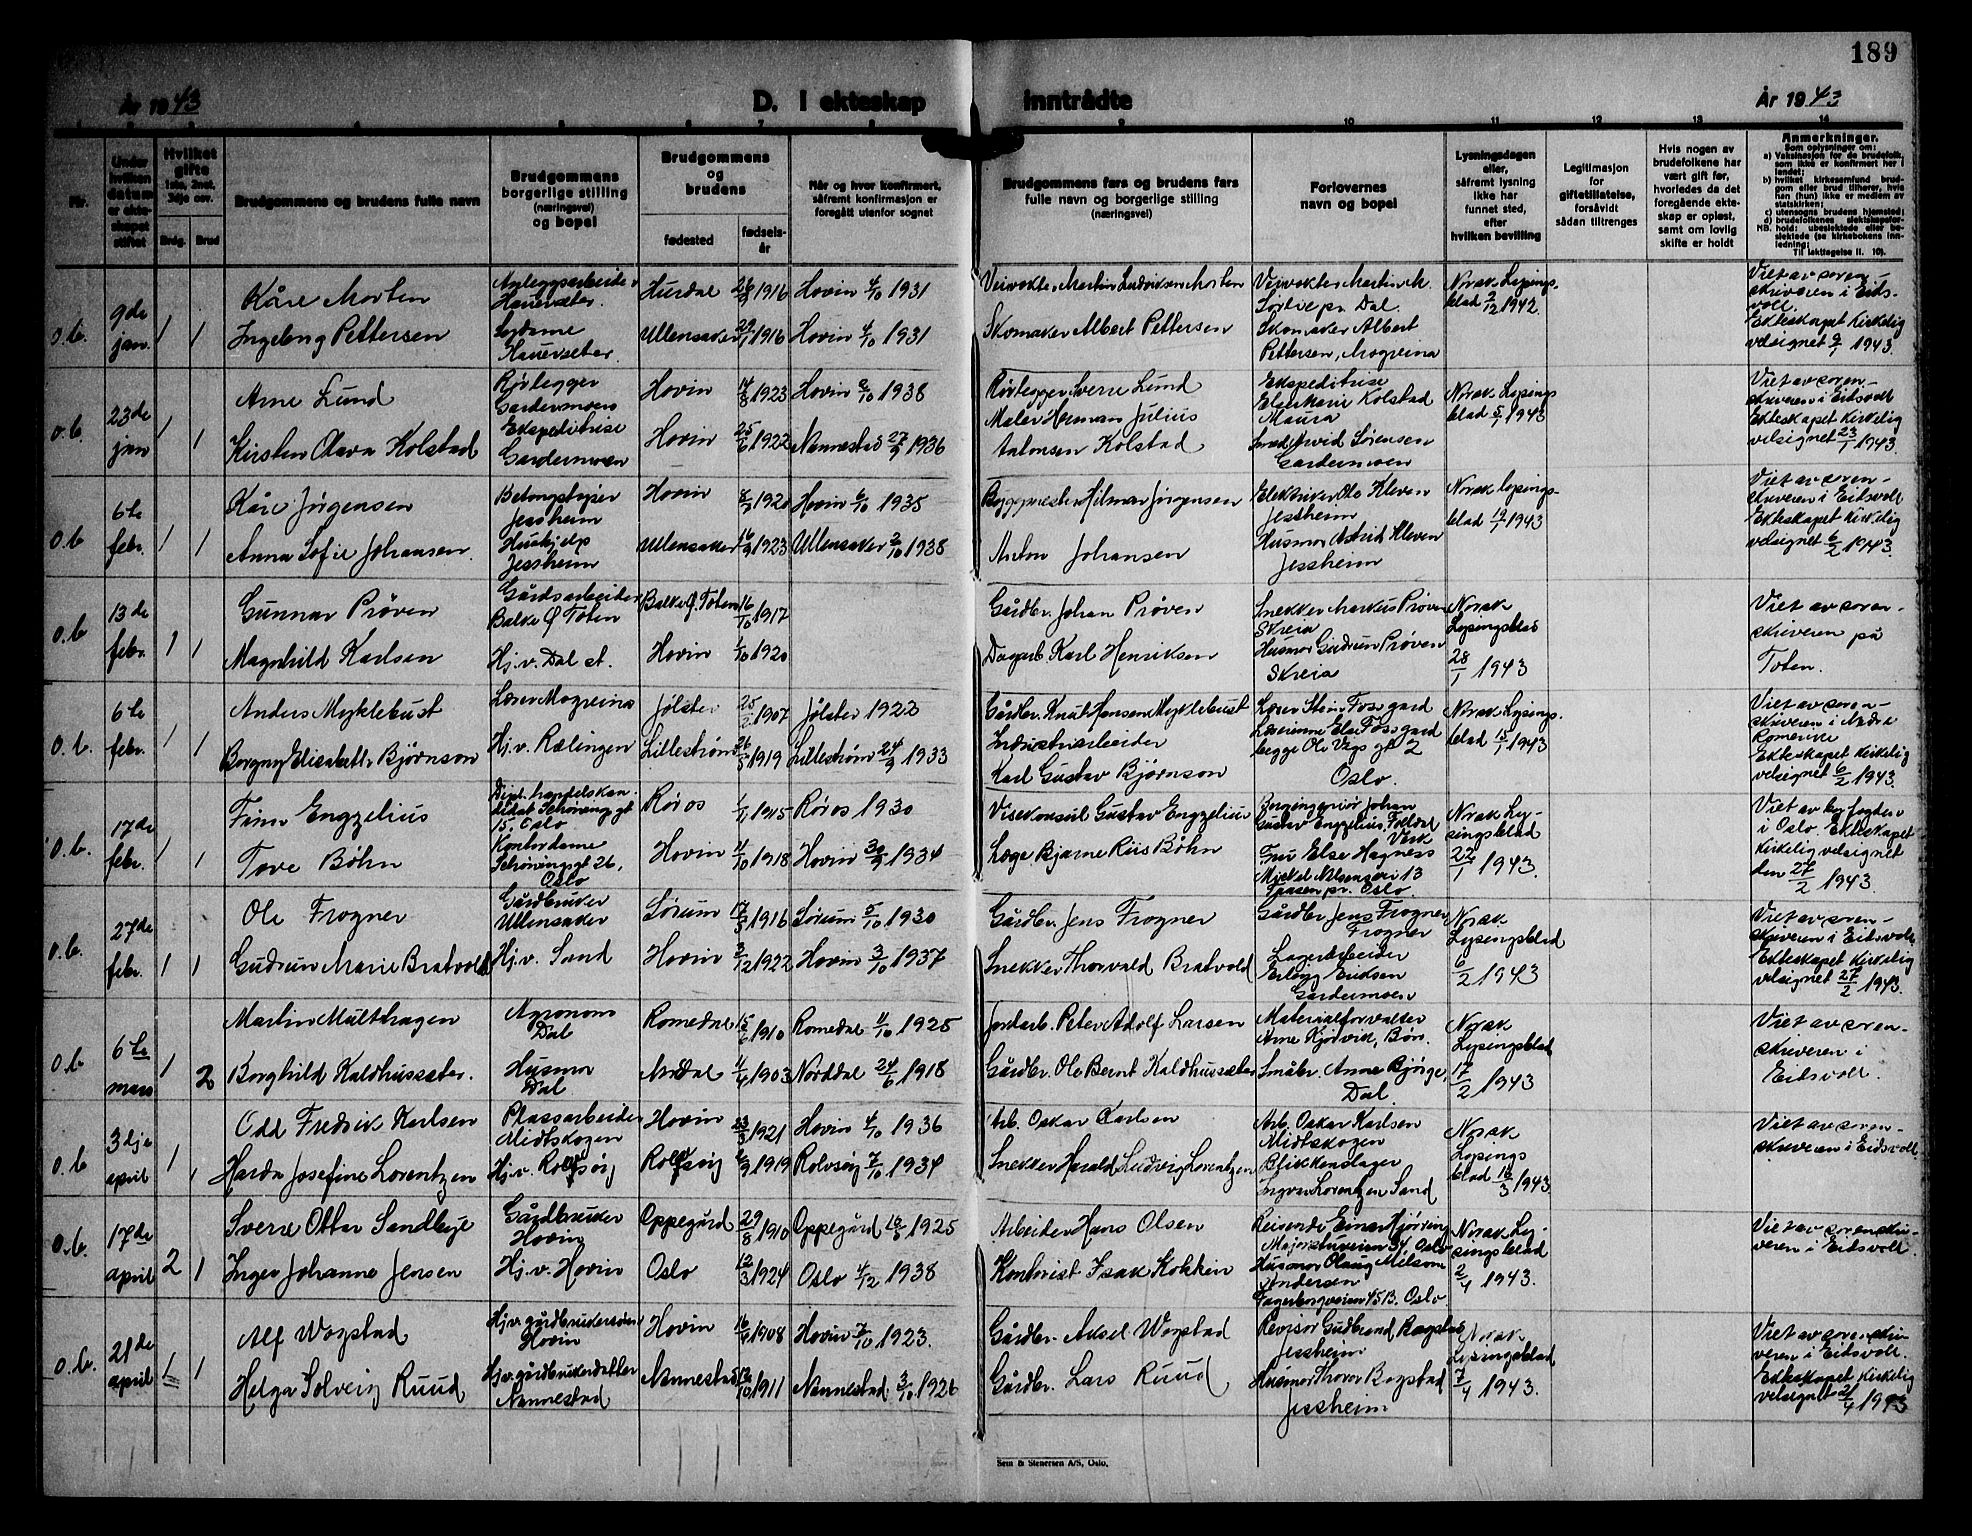 189
År 1943
D. I ekteskap inntrådte
År 1943
1 2 3 4 5 6 7 8 9 10 11 12 13 14
Nr.
Under hvilken datum er ekteskapet stiftet
Hvilket gifte
1ste, 2net, 3dje osv.
Brdg. Brud
Brudgommens og brudens fulle navn
Brudgommens borgerlige stilling (næringsvei) og bopel
Brudgommens og brudens
fødested
fødselsår
Når og hvor konfirmert, såfremt konfirmasjon er foregått utenfor sognet
Brudgommens fars og brudens fars fulle navn og borgerlige stilling (næringsvei)
Forlovernes navn og bopel
Lysningsdagen eller, såfremt lysning ikke har funnet sted, efter hvilken bevilling
Legitimasjon for giftetillatelse, forsåvidt sådan tiltrenges
Hvis nogen av brudefolkene har vært gift før, hvorledes da det foregående ekteskap er opløst, samt om lovlig skifte er holdt
Anmerkninger.
Som oplysninger om:
a) Vaksinasjon for de brudefolk, som ikke er konfirmert her i landet;
b) hvilket kirkesamfund brudgom eller brud tilhører, hvis han (hun) ikke er medlem av statskirken;
c) utensogns brudens hjemsted;
d) brudefolkenes slektskapsforhold: ubeslektede eller beslektede (se kirkebokens innledning;
NB.
Til iakttagelse II. 10).
o.b. 9de jan. 1 1
Kåre Morten
Anleggsarbeider Hauerseter
Hurdal 1916
Hovin 4/10 1931
Veivokter Martin Ludviksen Morten
Veivokter Martin M. pr. Dal.
Norsk Lysingsblad 9/12 1942.
Viet av sorenskriveren i Eidsvoll. Ekteskapet kirkelig velsignet 9/1 1943.
Ingebrg Pettersen
Hauerseter.
Ullensaker 1916
Hovin 4/10 1931
Skomaker Albert Pettersen
Skomaker Albert Pettersen, Mogreina
o.b. 23de jan 1 1
Arne Lund
Rørlegger Gardermoen
Hovin 14/8 1923
Hovin 1938
Rørlegger Sverre Lund
Ekspeditrise Else Marie Kolstad Maura
Norsk Lysingsblad 5/1 1943
Viet av sorenskriveren i Eidsvoll Ekteskapet kirkelig velsignet 23/1 1943.
Kirsten Olava Kolstad
Ekspeditrise Gardermoen
Hovin 25/6 1922
Nannestad 27/9 1936
Maler Herman Julius Antonsen Kolstad
Arvid Sørensen Gardermoen
o.b 6te febr. 1 1
Kåre Jørgensen
Betongstøper Jessheim
Hovin 1920
Hovin 6/10 1935
Byggmester Hilmar Jørgensen
Elektriker Ole Kleven Jessheim
Norsk lysingsblad 19/1 1943
Viet av sorenskriveren i Eidsvoll Ekteskapet kirkelig velsignet 6/2 1943.
Anna Sofie Johansen.
Hushjelp Jessheim
Ullensaker 16/9 1923
Ullensaker 2/10 1938
Anton Johansen
Husmor Astrid Kleven Jessheim
o.b 13de febr. 1 1
Gunnar Prøven
Gårdsarbeider Balke Ø Toten
Balke Ø. Toten 16/10 1917
Gårdbr. Johan Prøven
Snekker Markus Prøven Skreia
Norsk Lysingsblad 28/1 1943
Viet av sorenskriveren på Toten.
Magnhild Karlsen
Hj.v. Dal st.
Hovin 1/10 1920
Dagarb. Karl Henriksen
Husmor Gudrun Prøven Skreia
o.b. 6te febr. 1 1
Anders Myklebust
Lærer Mogreina
Jølster 1907
Jølster 1922
Gårdbr. Knut Hansen Myklebust
Lærer Stein Fossgard
Norsk Lysingsblad 15/1 1943
Viet av sorenskriveren i Nedre Romerike Ekteskapet kirkelig velsignet 6/2 1943.
Borgny Elisabeth Bjørnson
Hj.v. Rælingen
Lillestrøm 1919
Lillestrøm 24/9 1933
Industriarbeider Karl Gustav Bjørnson
Lærerinne Else Fossgard begge Ole Vigs gt 2 Oslo.
o.b. 17de febr. 1 1
Finn Engzelius
Dipl. handelskandidat Schøningsgt 15, Oslo
Røros 1/1 1915
Røros 1930
Visekonsul Gustav Engzelius
Bergingeniør Johan Gustav Engzelius, Folldal Verk
Norsk Lysingsblad 22/1 1943.
Viet av byfogden i Oslo. Ekteskapet kirkelig velsignet den 27/2 1943.
Tove Bøhn
Kontordame Schøningsgt 26, Oslo
Hovin 11/10 1918
Hovin 30/9 1934
Læge Bjarne Riis Bøhn
Fru Else Hagness 13 pr. Oslo
o.b. 27de febr. 1 1
Ole Frogner
Gårdbruker Ullensaker
Sørum 1916
Sørum 5/10 1930
Gårdbr. Jens Frogner
Gårdbr. Jens Frogner Frogner
Norsk Lysingsblad 6/2 1943
Viet av sorenskriveren i Eidsvoll Ekteskapet kirkelig velsignet 27/2 1943.
Gudrun Marie Bratvold
Hj.v. Sand
Hovin 3/12 1922
Hovin 3/10 1937
Snekker Thorvald Bratvold
Lagerarbeider Erling Eriksen Gardermoen
o.b 6te mars 1 2
Martin Multhagen
Agronom Dal
Romedal 15/6 1910
Romedal 11/10 1925
Jordarb. Peter Adolf Larsen
Materialforvalter Arne Kjørvik, Bøn.
Norsk Lysingsblad 17/2 1943
Viet av sorenskriveren i Eidsvoll.
Borghild Kaldhussæter.
Husmor Dal
Norddal 1/4 1903
Norddal 24/6 1918
Gårdbr. Ole Bernt Kaldhussæter
Småbr. Anne Bjørge Dal.
o.b 3dje april 1 1
Odd Fredrik Karlsen
Plassarbeider Midtskogen
Hovin 23/3 1921
Hovin 4/10 1936
Arb. Oskar Karlsen
Arb. Oskar Karlsen Midtskogen
Norsk Lysingsblad 16/3 1943
Viet av sorenskriveren i Eidsvoll
Josefine Lorentzen
Hj.v. Rolfsøy
Rolfsøy 1919
Rolvsøy 7/10 1934
Snekker Harald Ludvig Lorentzen
Blikkenslager Ingvar Lorentzen Sand
o.b. 17de april 2 1
Sverre Ottar Sandbye
Gårdbruker Hovin
Oppegård 29/8 1910
Oppegård 1925
Arbeider Hans Olsen
Reisende Einar Hjørring Majorstuveien 34 Oslo
Norsk Lysingsblad 2/4 1943.
Viet av sorenskriveren i Eidsvoll.
Inger Johanne Jensen
Hj.v. Hovin
Oslo 12/3 1924
Oslo 4/12 1938
Kontorist Isak Kokkin
Husmor Olaug Milsom Andersen Fagerborgveien 45B. Oslo
o.b. 21de april 1 1
Alf Wogstad
Hj.v. gårdbrukersønn Hovin
Hovin 16/4 1908
Hovin 7/10 1923.
Gårdbr. Aksel Wogstad
Revisor Gudbrand Ragstad Jessheim
Norsk Lysingsblad 7/4 1943.
Viet av sorenskriveren i Eidsvoll. Ekteskapet kirkelig velsignet 21/4 1943
Helga Solveig Ruud
Hj.v. gårdbrukerdatter Nannestad
Nannestad 1911
Nannestad. 3/10 1926
Gårdbr. Lars Ruud
Husmor Thora Bogstad Jessheim
Sem & Stenersen A/S, Oslo.